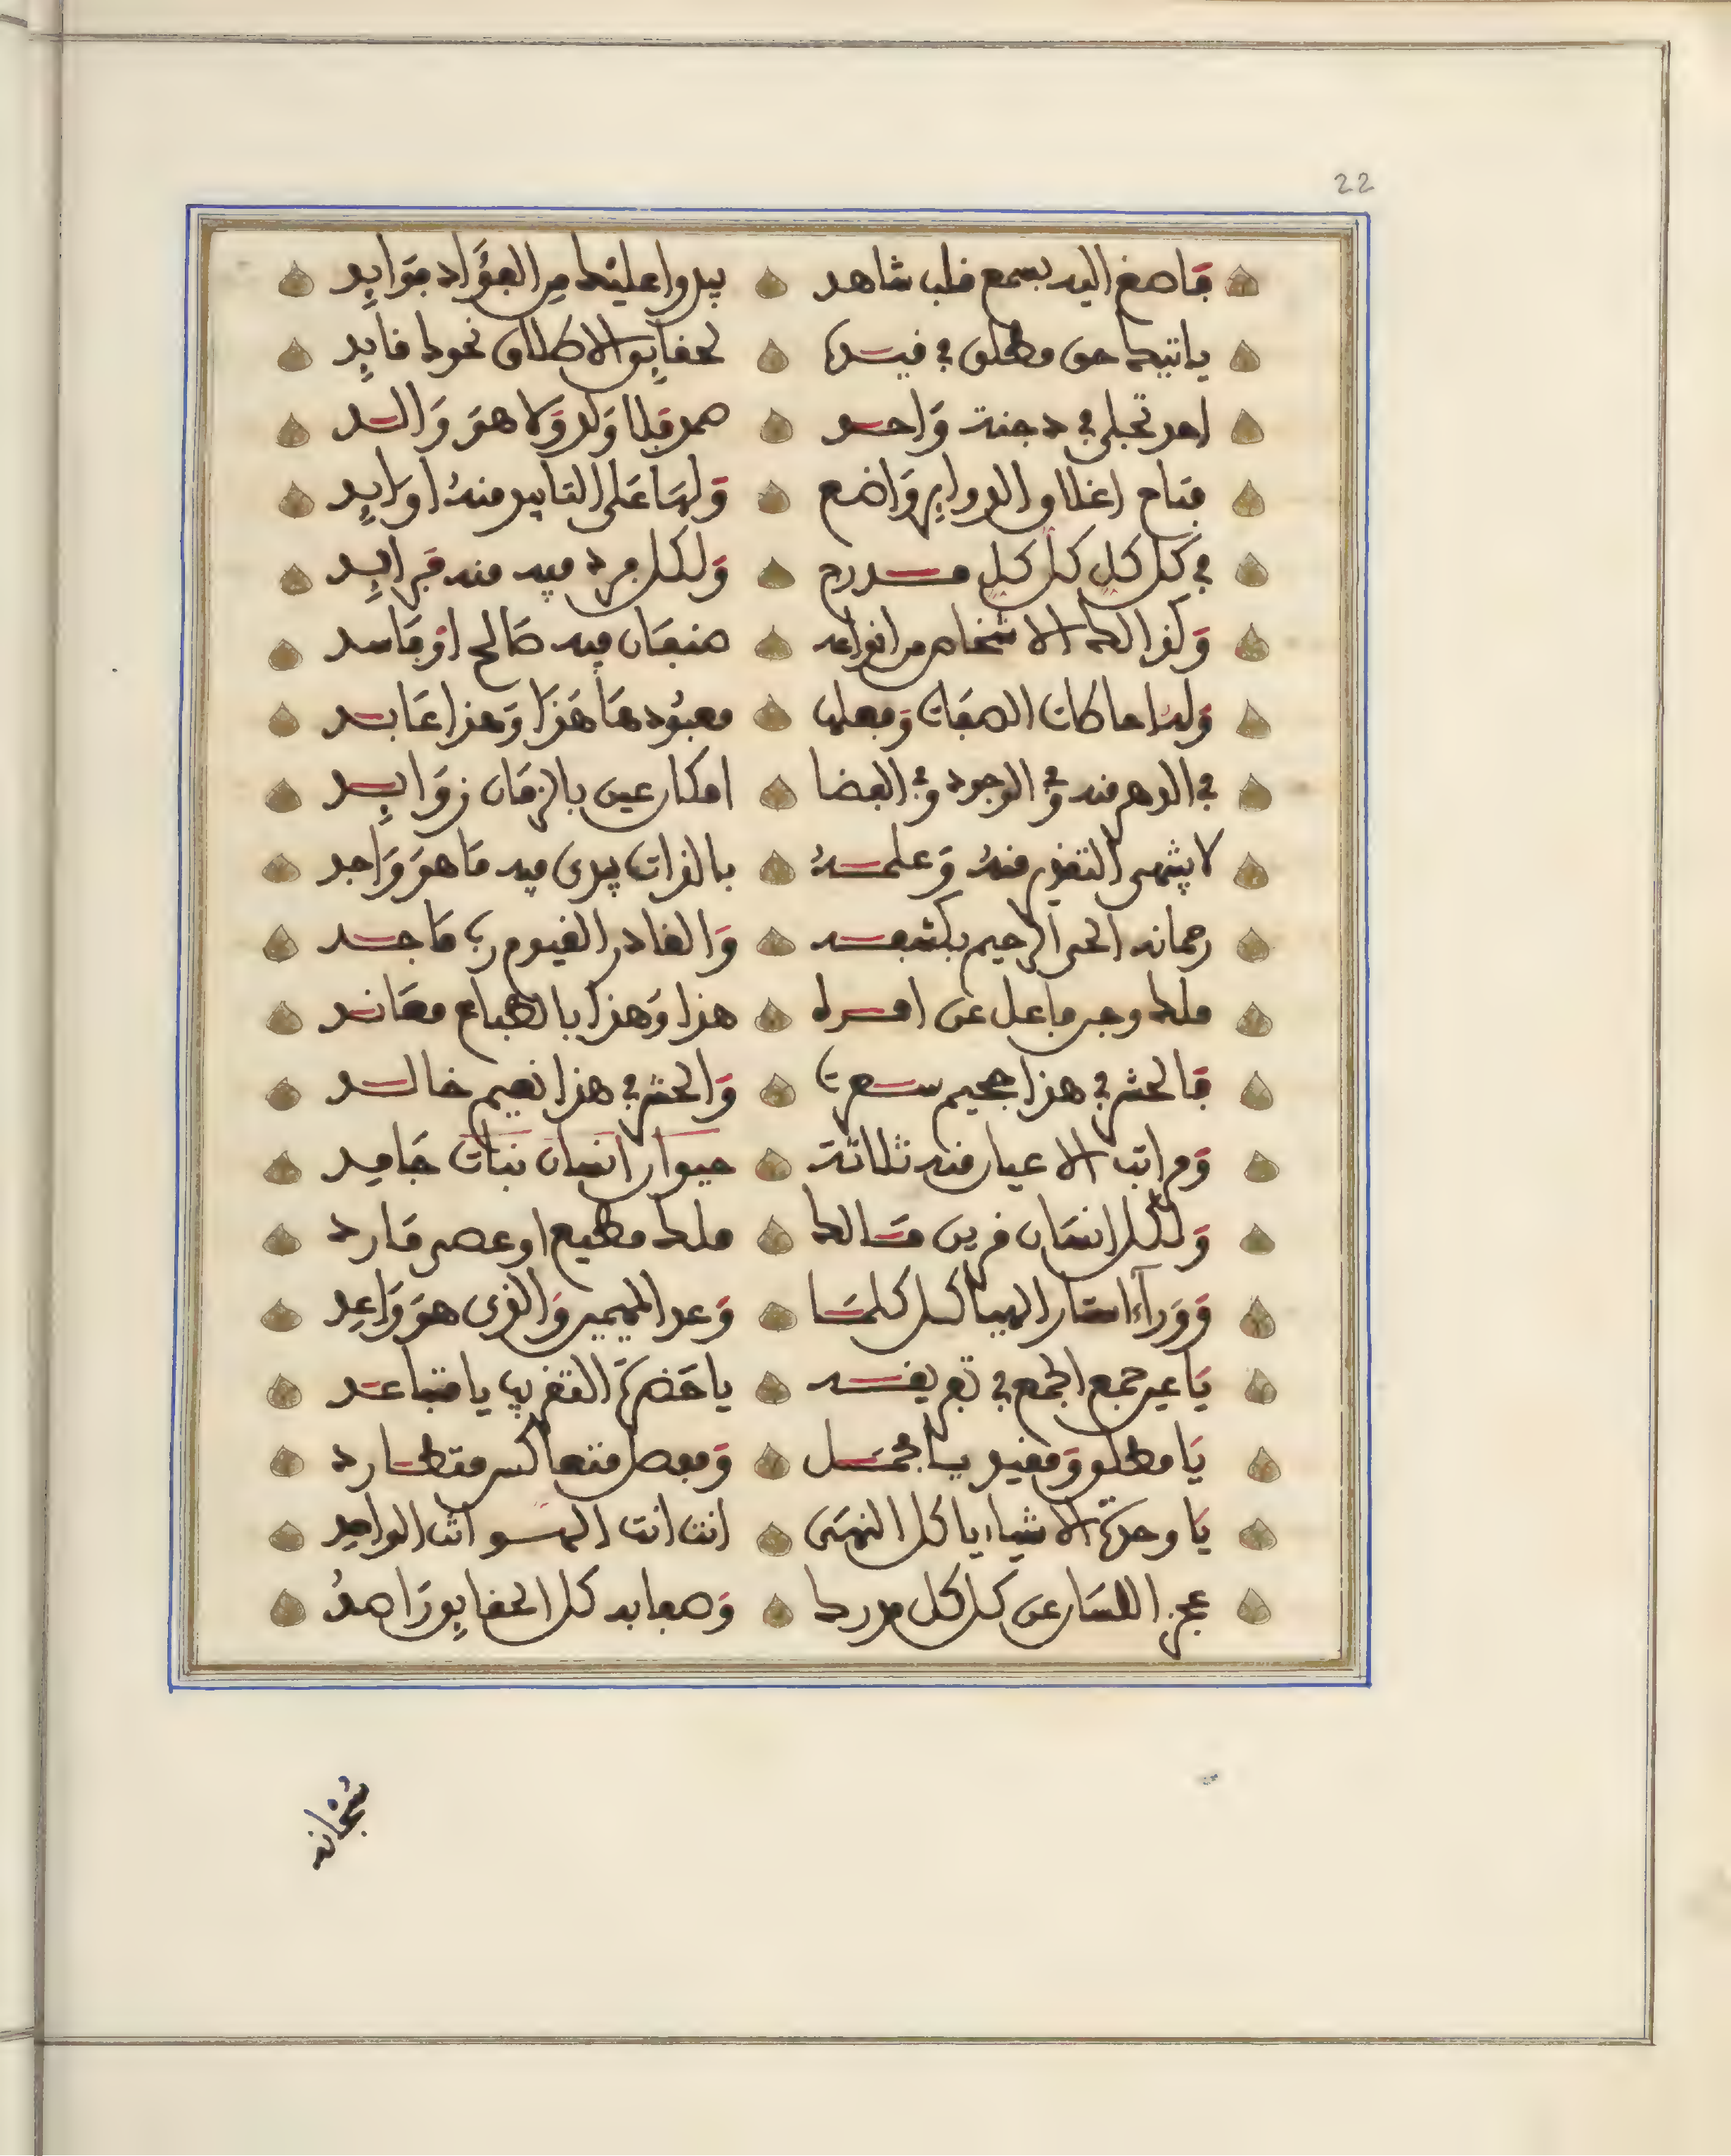 22
فاصغ اليه بسمع قلب شاهد يبدوا عليك من الفؤاد فوايد
ياتيك حق مطلق في قيده لحقايق الاطلاق نحوك قايد
احد تجلى في دجنة واحد صمد فلا ولد ولا هو والد
فتاح اغلاق الدواير واضع ولها على التاييد منه اوابد
في كل كل كل كل مدرج ولكل فرد فيه منه فرايد
وكذالك الاشخاص من انواعه صنفان فيه صالح او فاسد
ولذا كانت الصفات وفعلها معبودها هذا وهذا عابد
في الدهر منه وفي الوجود وفي الفضا امكار عين بالزمان زوايد
لا ينتهى التقدير منه وعلمه بالذات يبدى فيه ما هو واجد
رحمانه الحي الرحيم بكشفه والقادر القيوم رب ماجد
ملك وجن فاعل عن امره هذا وهذا بالطباع معاند
فالحشر في هذا جحيم سعرت والحشر في هذا نعيم خالد
ومراتب الاعيان منه ثلاثة حيوان انسان نبات جامد
ولكل انسان قرين مسالك ملك مطيع او عصى مارد
ووراء استار الهياكل كلما وعد المهيمن والذى هو واعد
يا عين جمع الجمع في تفريقه يا حضرة التقريب يا متباعد
يا مطلق ومقيد يا مجمل ومفصل متعاكس متطارد
يا وحدة الاشياء يا كل النهى انت انت الهو انت الواحد
عجز اللسان عن كل كل مدرك وصفا به كل الحقايق راصد
سبحانه